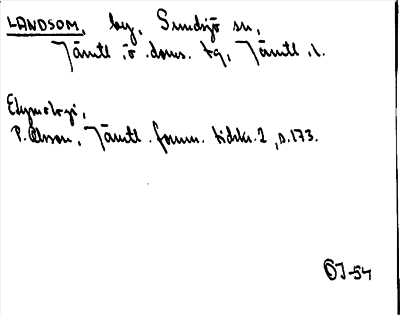 LANDSOM, by, Sundsjö sn,
Jämtl. ö. doms. tg, Jämtl. l.
Etymologi,
P. Olsson, Jämtl. fornm. tidskr. 2, s. 173.
ÖJ-54